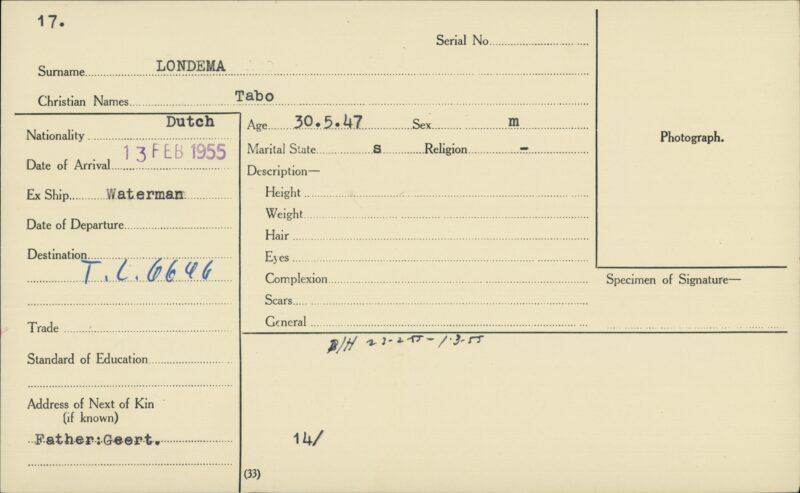 17.
Serial No
Surname LONDEMA
Christian Names Tabo
Nationality Dutch
Date of Arrival 13 FEB 1955
Ex Ship Waterman
Date of Departure
Destination
T.L. 6646
Trade
Standard of Education
Address of Next of Kin
(if known)
Father:Geert.
Age 30.5.47 Sex m
Marital State s Religion -
Description—
Height
Weight
Hair
Eyes
Complexion
Scars
General
B/H 23-2-55 - 1.3.55
14/
(33)
Photograph.
Specimen of Signature—